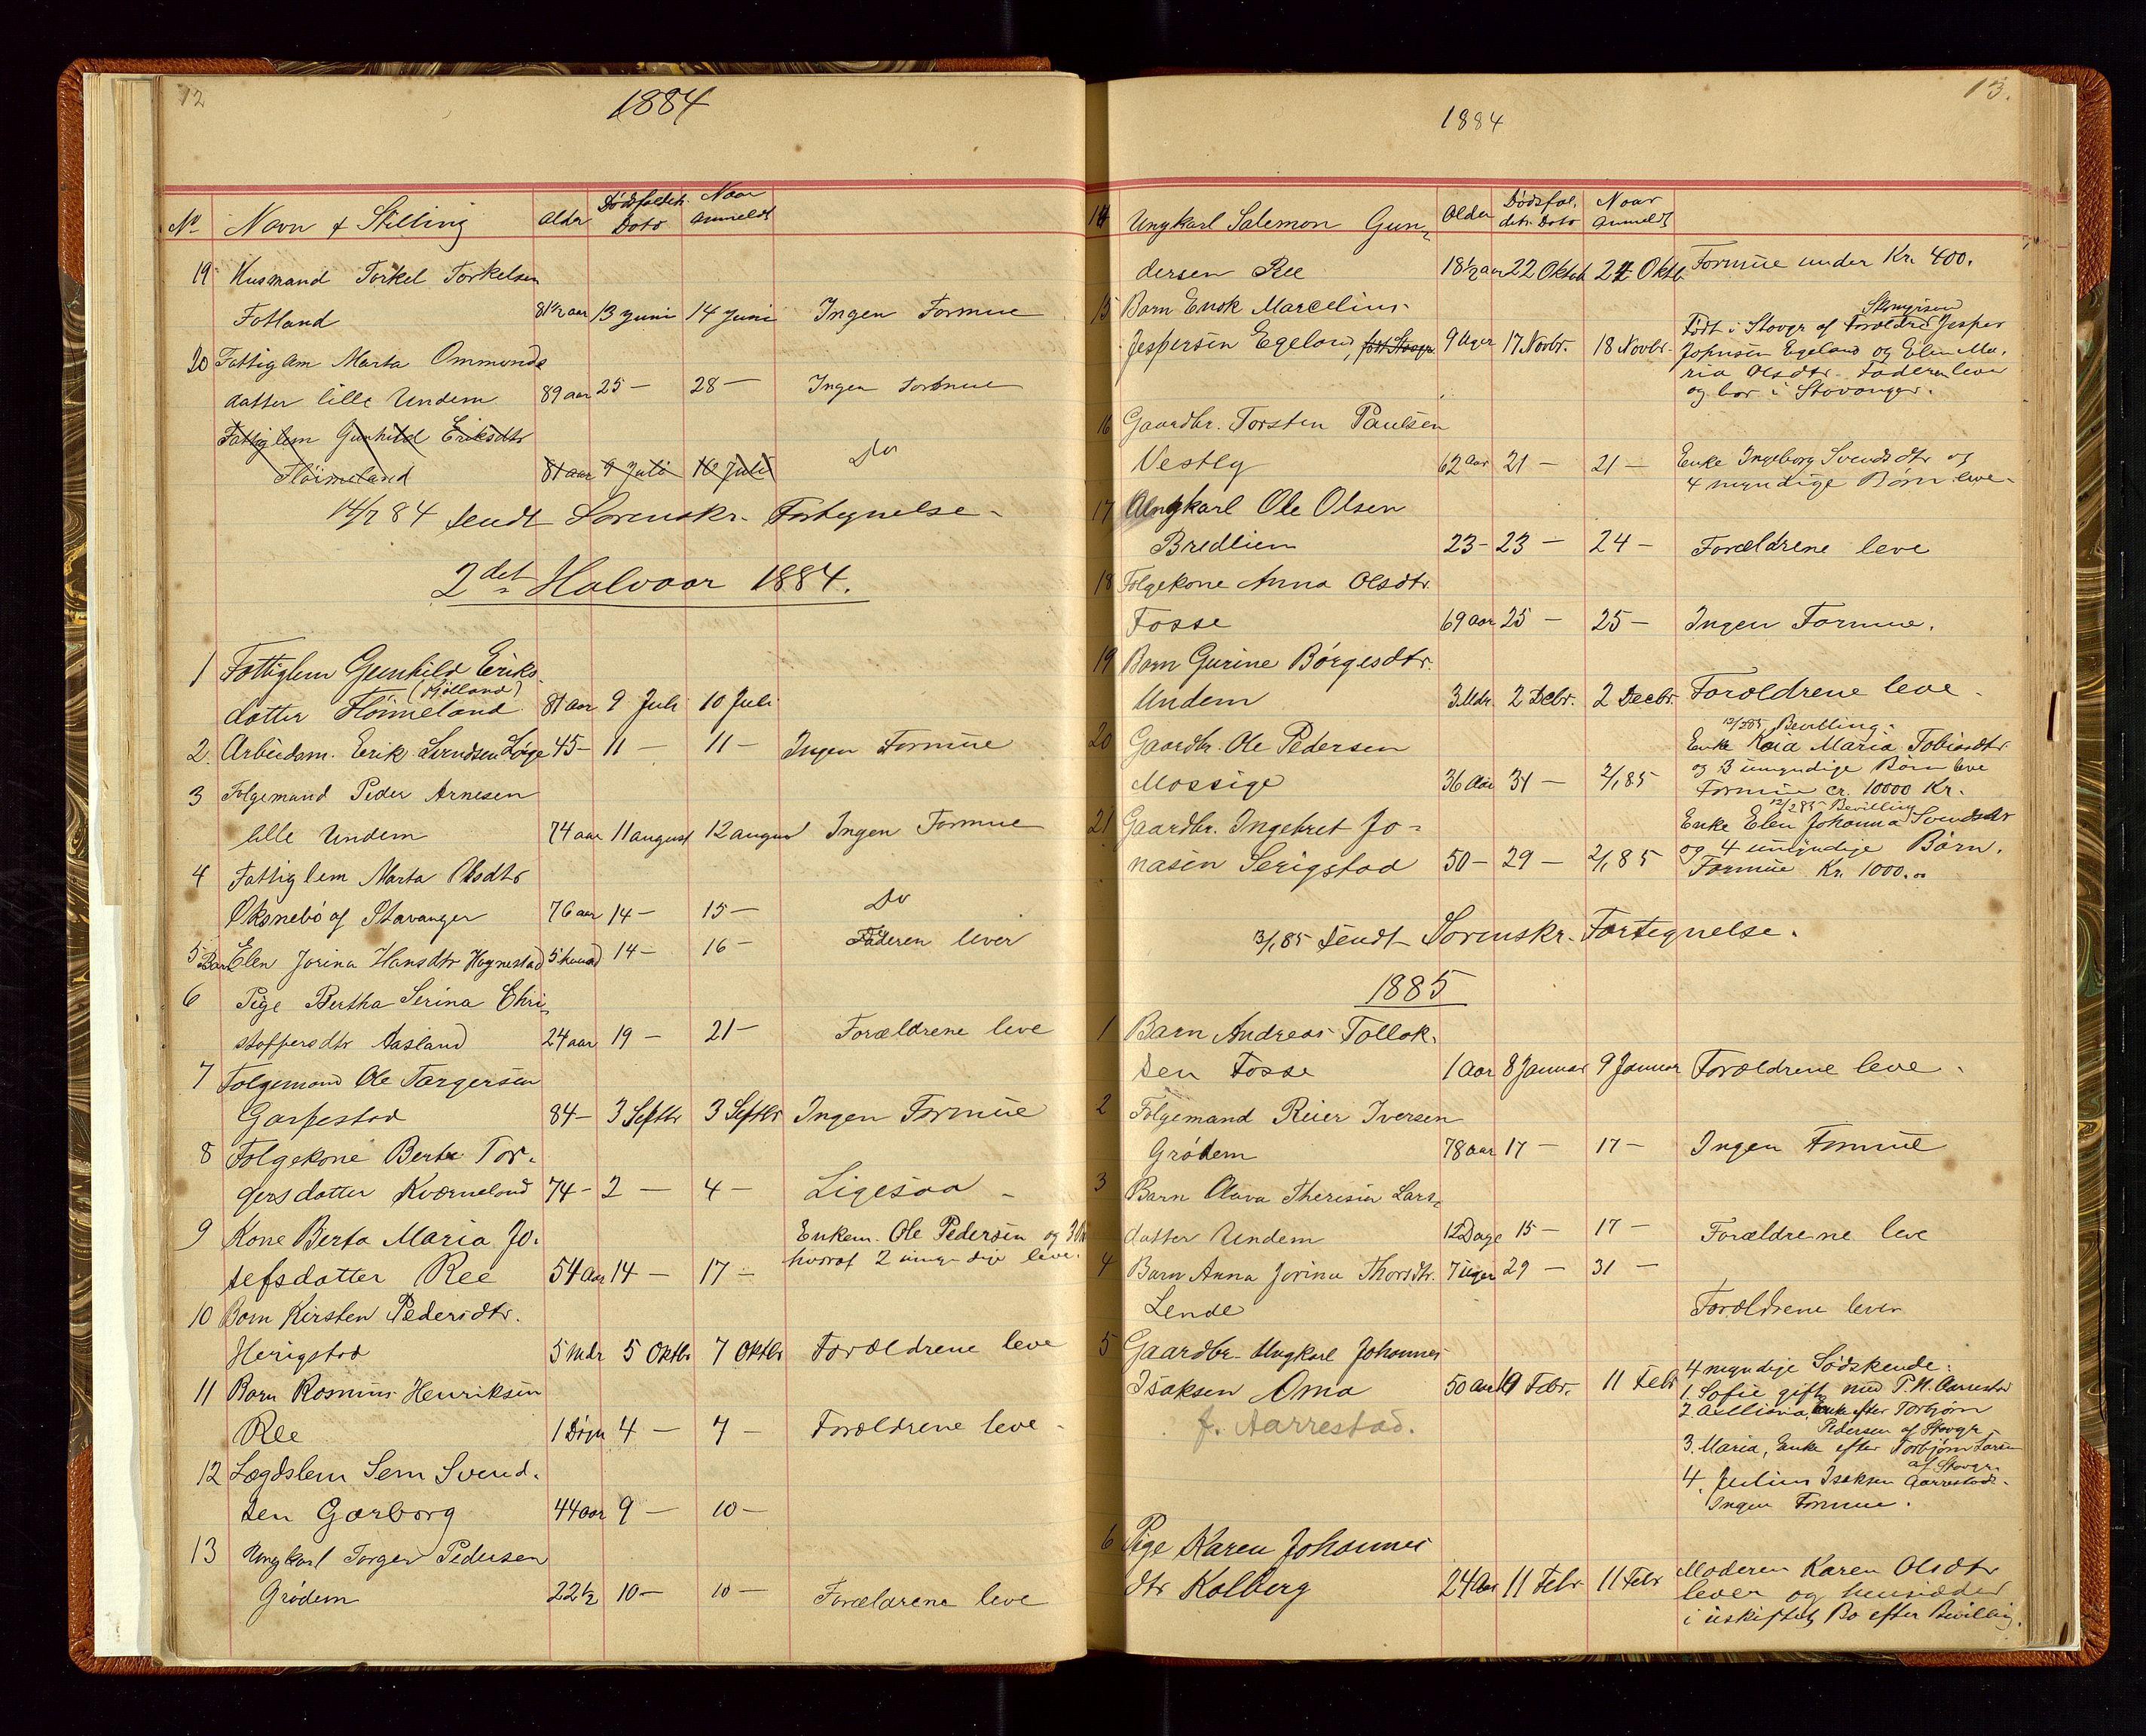 12
1884
No Navn & Stilling Alder Dødsfaldets Dato Naar Anmeldt
19 Husmand Torkel Torkelsen
Fotland 81½ aar 13 Juni 14 Juni Ingen Formue
20 Fattiglem Marta Ommunds
datter lille Undem 89 aar 25 — 28 — Ingen Formue
Fattiglem Gunhild Eriksdtr
Hoimeland 81 aar 9 Juli 10 Juli Do
14/7 84 sendt Sorenskr. Fortegnelse
2det Halvaar 1884.
1 Fattiglem Gunhild Eriks
(Kjølland)
datter Hoimeland 81 aar 9 Juli 10 Juli
2. Arbeidsm. Eerik Svendsen Lye 45 — 11 — 11 — Ingen Formue
3 Følgemand Peder Arnesen
lille Undem 74 aar 11 august 12 august Ingen Formue
4 Fattiglem Marta Olsdtr
Oksnebø af Stavanger 76 aar 14 — 15 — Do
5 Barn Elen Jorina Hansdtr Hognestad 5 14 — 16 — Faderen lever
6 Pige Bertha Serina Chri-
stoffersdtr Aasland 24 aar 19 — 21 — Forældrene leve
7 Følgemand Ole Torgersen
Garpestad 84 — 3 Septbr 3 Septbr Ingen Formue
8 Følgekone Berte Tor-
gersdatter Kværneland 74 — 2 — 4 — Ligesaa —
9 Kone Berta Maria Jo- Enkem. Ole Pedersen og 3
sefsdatter Ree 54 Aar 14 — 17 — hvoraf 2 umyndige leve.
10 Barn Kirsten Pedersdtr.
Herigstad 5 Mdr 5 Oktbr 7 Oktbr Forældrene leve
11 Barn Rasmus Henriksen
Ree 1 Døgn 4 — 7 — Forældrene leve
12 Lægdslem Sem Svend-
sen Garborg 44 aar 9 — 10 —
13 Ungkarl Torger Pedersen
Grødem 22½ 10 — 10 — Forældrene leve
13.
1884
14 Ungkarl Salemon Gun- Alder Dødsfal- dets Dato Naar Anmeldt
dersen Ree 18½ aar 22 Oktob 24 Oktb Formue under Kr. 400.
15 Barn Enok Marcelius
Jespersen Egeland, født Stavgr. 9 Uger 17 Novbr. 18 Novbr. Født i Stavgr af Forældre Jesper
Johnsen Egeland og Elen Ma-
ria Olsdtr. Faderen lever
og bor i Stavanger.
16 Gaardbr. Torsten Paulsen
Vestly 62 aar 21 — 21 — Enke Ingeborg Svendsdtr og
4 myndige Børn leve
17 Ungkarl Ole Olsen
Bredlien 23 — 23 — 24 — Forældrene leve
18 Følgekone Anna Olsdtr.
Fosse 69 aar 25 — 25 — Ingen Formue.
19 Barn Gurine Børgesdtr.
Undem 3 Mdr. 2 Decbr. 2 Decbr. Forældrene leve
12/2 85 Bevilling.
20 Gaardbr. Ole Pedersen Enke Kaia Maria Tobiasdtr
Mossige 36 Aar 31 — 2/1 85 og 3 umyndige Børn leve
Formue cr. 10000 Kr.
12/2 85 Bevilling
21 Gaardbr. Ingebret Jo- Enke Elen Johanna Svendsdtr
nasen Serigstad 50 — 29 — 2/1 85 og 4 umyndige Børn.
Formue Kr. 1000.00
3/1 85 Sendt Sorenskr. Fortegnelse.
1885
1 Barn Andreas Tollak-
sen Fosse 1 Aar 8 Januar 9 Januar Forældrene leve
2 Følgemand Reier Iversen
Grødem 78 aar 17 — 17 — Ingen Formue
3 Barn Olava Theresia Lars-
datter Undem 12 Dage 15 — 17 — Forældrene leve
4 Barn Anna Jorina Thorsdtr. 7 Uger 29 — 31 —
Lende Forældrene lever
5 Gaardbr. Ungkarl Johannes
Isaksen Oma 50 aar 10 Febr. 11 Febr 4 myndige Sødskende:
1. Sofie gift med P. N. Aarrestad
f. Aarrestad.
2 Enke efter Torbjørn
Pedersen af Stavgr
3. Maria, Enke efter Torbjørn Larsen
af Stavgr.
4. Julius Isaksen Aarrestad.
Ingen Formue.
6 Pige Karen Johannes
dtr Kalberg 24 Aar 11 Febr 11 Febr Moderen Karen Olsdtr
lever og hensidder
i uskiftet Bo efter Bevilling.